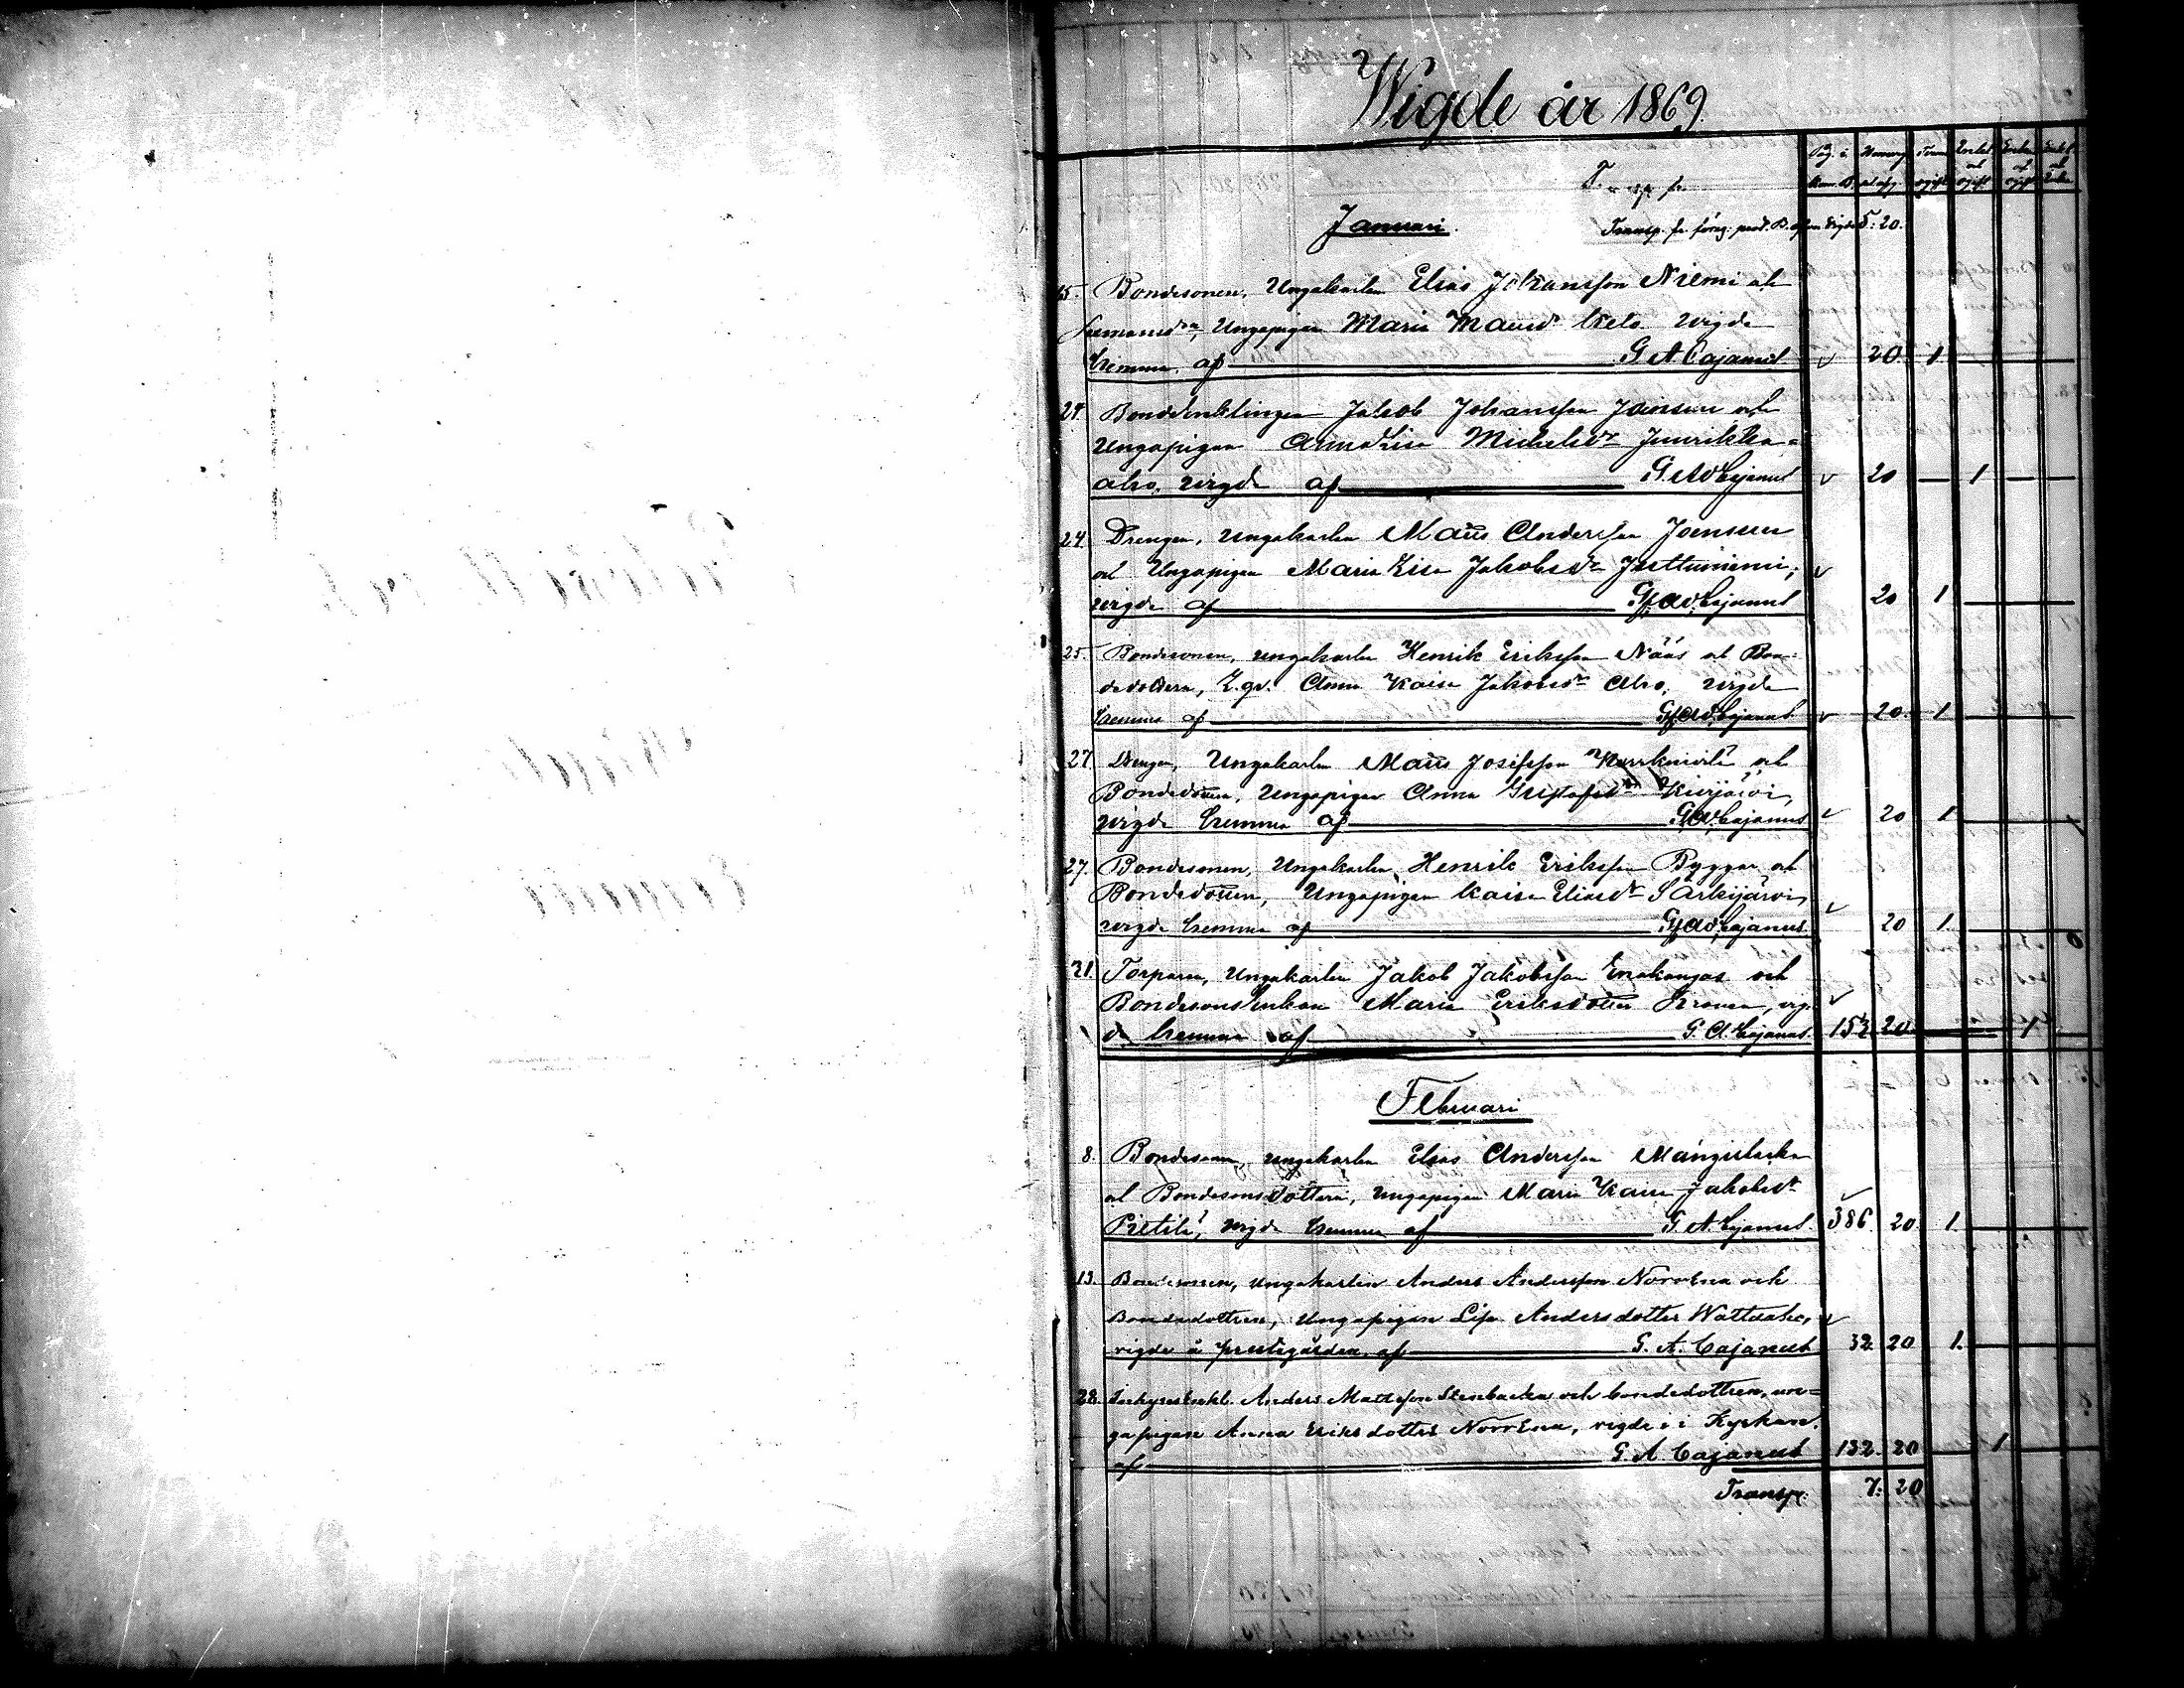 Wigde år 1869
Pag. i Tro Enkl. Enka Enkl.
och och och
ogift ogift Enka
Januari.
Transp. fr. föreg. 5: 20.
15. Bondesonen, Ungakarlen Elias Johansson Niemi och
Ungapigan Maria Mattsdr Keto wigde
hemma, af G A Cajanus 20 1
24. Bondeenklingen Jakob Johansson Joensuu och
Ungapigan Anna Lisa Michelsdr Juurikka-
aho, wigde af G. Ad Cajanus 20 1
24 Drengen, Ungakarlen Matts Andersson Joensuu
och Ungapigan Maria Lisa Jakobsdr
wigde af G. Ad. Cajanus 20 1
25. Bondesonen, ungakarlen Henrik Eriksson Nääs och Bon-
dedottern, Anna Kaisa Jakobsdr Aho, wigde
hemma af G. Ad. Cajanus 20 1
27 Drengen, Ungakarlen Matts Josefsson och
Bondedottern, Ungapigan Anna Gustafsdr Kivijärvi,
wigde hemma af G. Ad. Cajanus 20 1
27. Bondesonen, Ungakarlen Henrik Eriksson Byggar och
Bondedottern, Ungapigan Kaisa Eliasdr Särkijärvi,
wigde hemma af G. Ad. Cajanus 20 1.
31. Torparen, Ungakarlen Jakob Jakobsson Emakangas och
Bondesons Enkan Maria Eriksdotter wig-
de hemma af G. A. Cajanus 152 20 1
Februari
8. Bondesonen, ungakarlen Elias Andersson
och Bondesonsdottern, Ungapigan Maria Kaisa Jakobsdr
Pietilä, wigde hemma af G. A. Cajanus 386 20 1.
13. Bondesonen, ungakarlen Anders Andersson Norrena och
Bondedottern, Ungapigan Lisa Andersdotter
vigde å prestgården af G. A. Cajanus 32 20 1.
28. Inhysesenkl. Anders Mattsson Stenbacka och bondedottren, un-
gapigan Anna Eriksdotter Norrena, vigde i Kyrkan.
af G. A Cajanus 132. 20 1
Transp: 7: 20